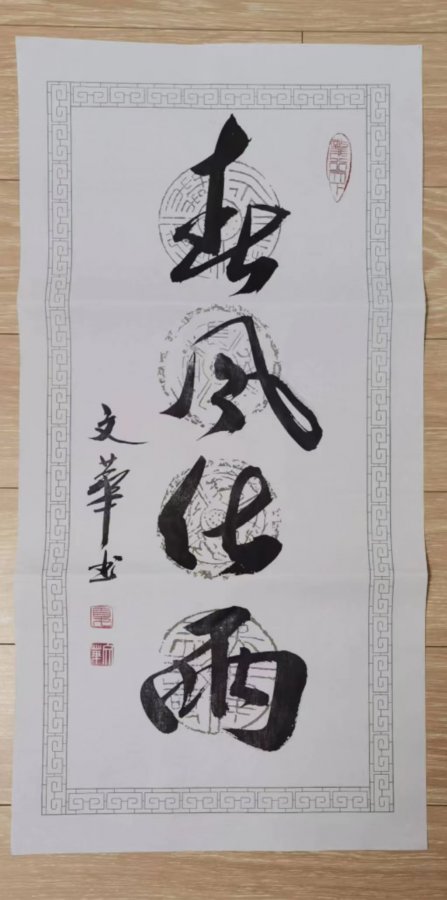 春风化雨
文華书